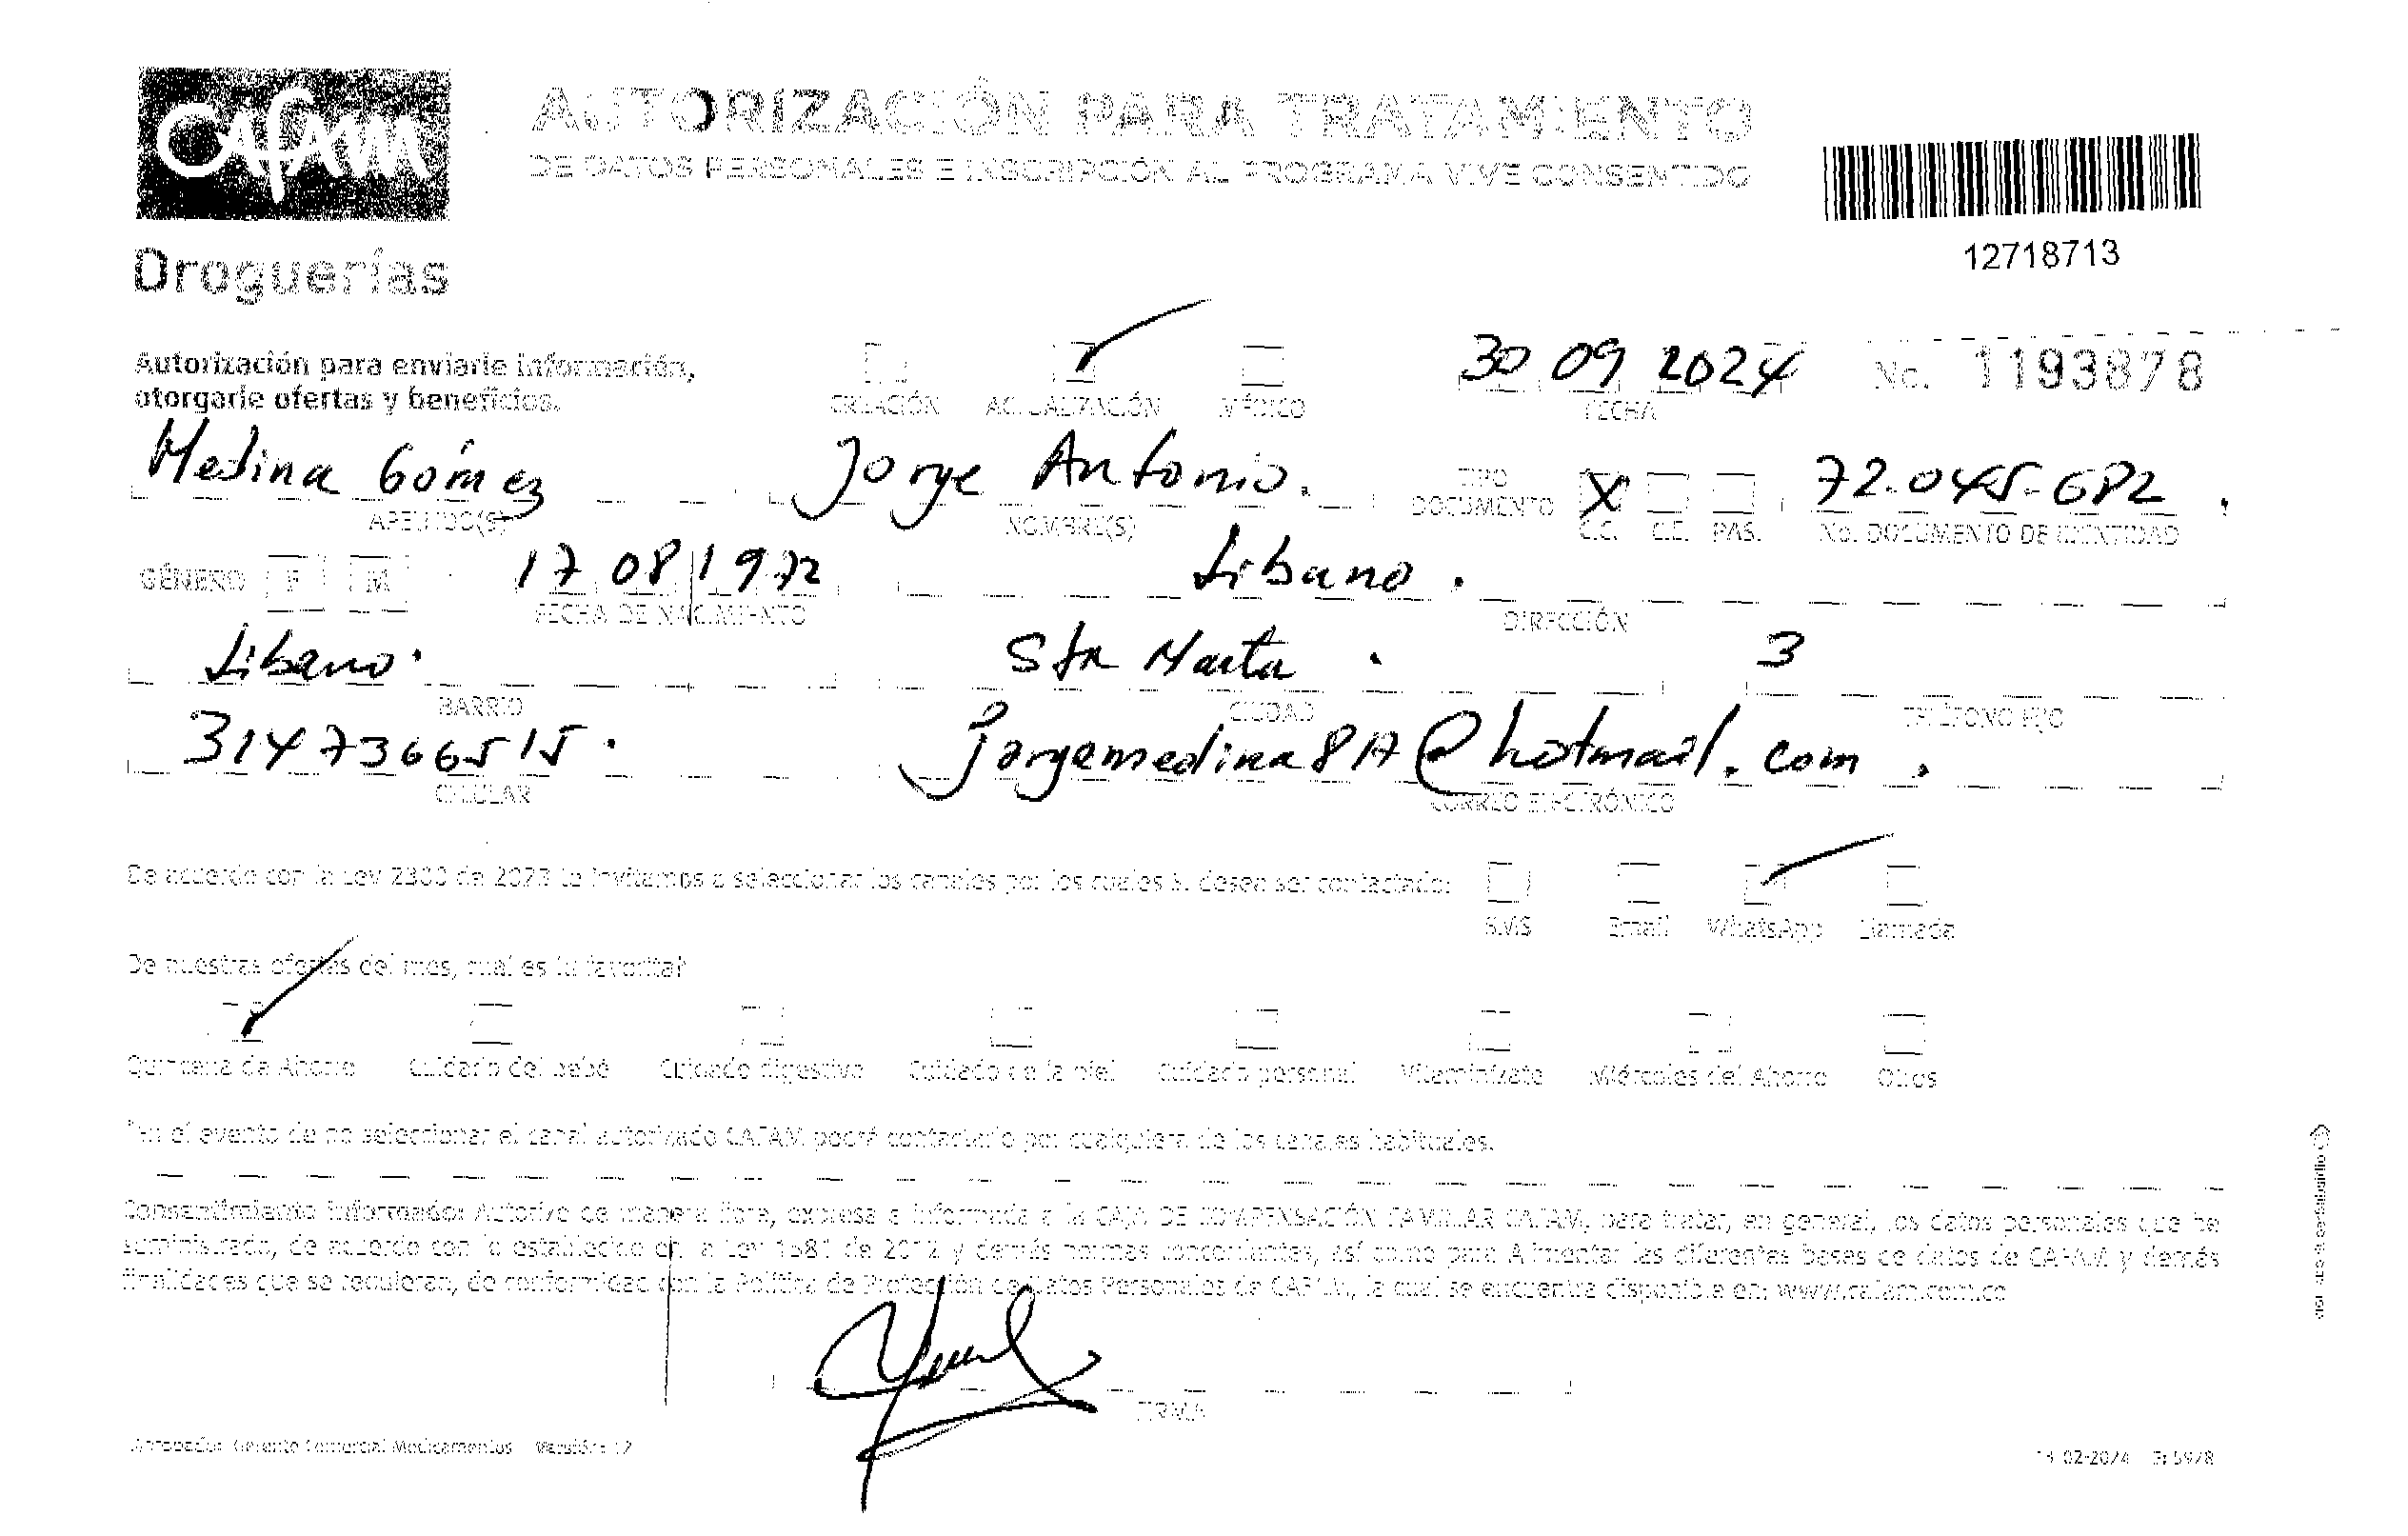 Cafam
Droguerías
AUTORIZACIÓN PARA TRATAMIENTO
DE DATOS PERSONALES E INSCRIPCIÓN AL PROGRAMA VIVE CONSENTIDO
12718713
Autorización para enviarle información,
otorgarle ofertas y beneficios.
CREACIÓN ACTUALIZACIÓN MÉDICO
30 09 2024
FECHA
No. 1193878
Medina Gómez
APELLIDO(S)
Jorge Antonio.
NOMBRE(S)
TIPO
DOCUMENTO
X
C.C. C.E. PAS.
72.045.682.
No. DOCUMENTO DE IDENTIDAD
GÉNERO F M
17 08 1972
FECHA DE NACIMIENTO
Libano.
DIRECCIÓN
Libano.
BARRIO
Sta Marta.
CIUDAD
3
TELÉFONO FIJO
3147366515.
CELULAR
jorgemedina8A@hotmail.com.
CORREO ELECTRÓNICO
De acuerdo con la Ley 2300 de 2023 le invitamos a seleccionar los canales por los cuales sí desea ser contactado:
SMS Email WhatsApp Llamada
De nuestras ofertas del mes, cuál es tu favorita?
Quincena de Ahorro Cuidado del bebé Cuidado digestivo Cuidado de la piel Cuidado personal Vitaminízate Miércoles del Ahorro Otros
*En el evento de no seleccionar el canal autorizado CAFAM podrá contactarlo por cualquiera de los canales habituales.
Consentimiento informado: Autorizo de manera libre, expresa e informada a la CAJA DE COMPENSACIÓN FAMILIAR CAFAM, para tratar, en general, los datos personales que he
suministrado, de acuerdo con lo establecido en la Ley 1581 de 2012 y demás normas concordantes, así como para Alimentar las diferentes bases de datos de CAFAM y demás
finalidades que se requieran, de conformidad con la Política de Protección de Datos Personales de CAFAM, la cual se encuentra disponible en: www.cafam.com.co
FIRMA
Aprobado: Gerente Comercial Medicamentos Versión: 12